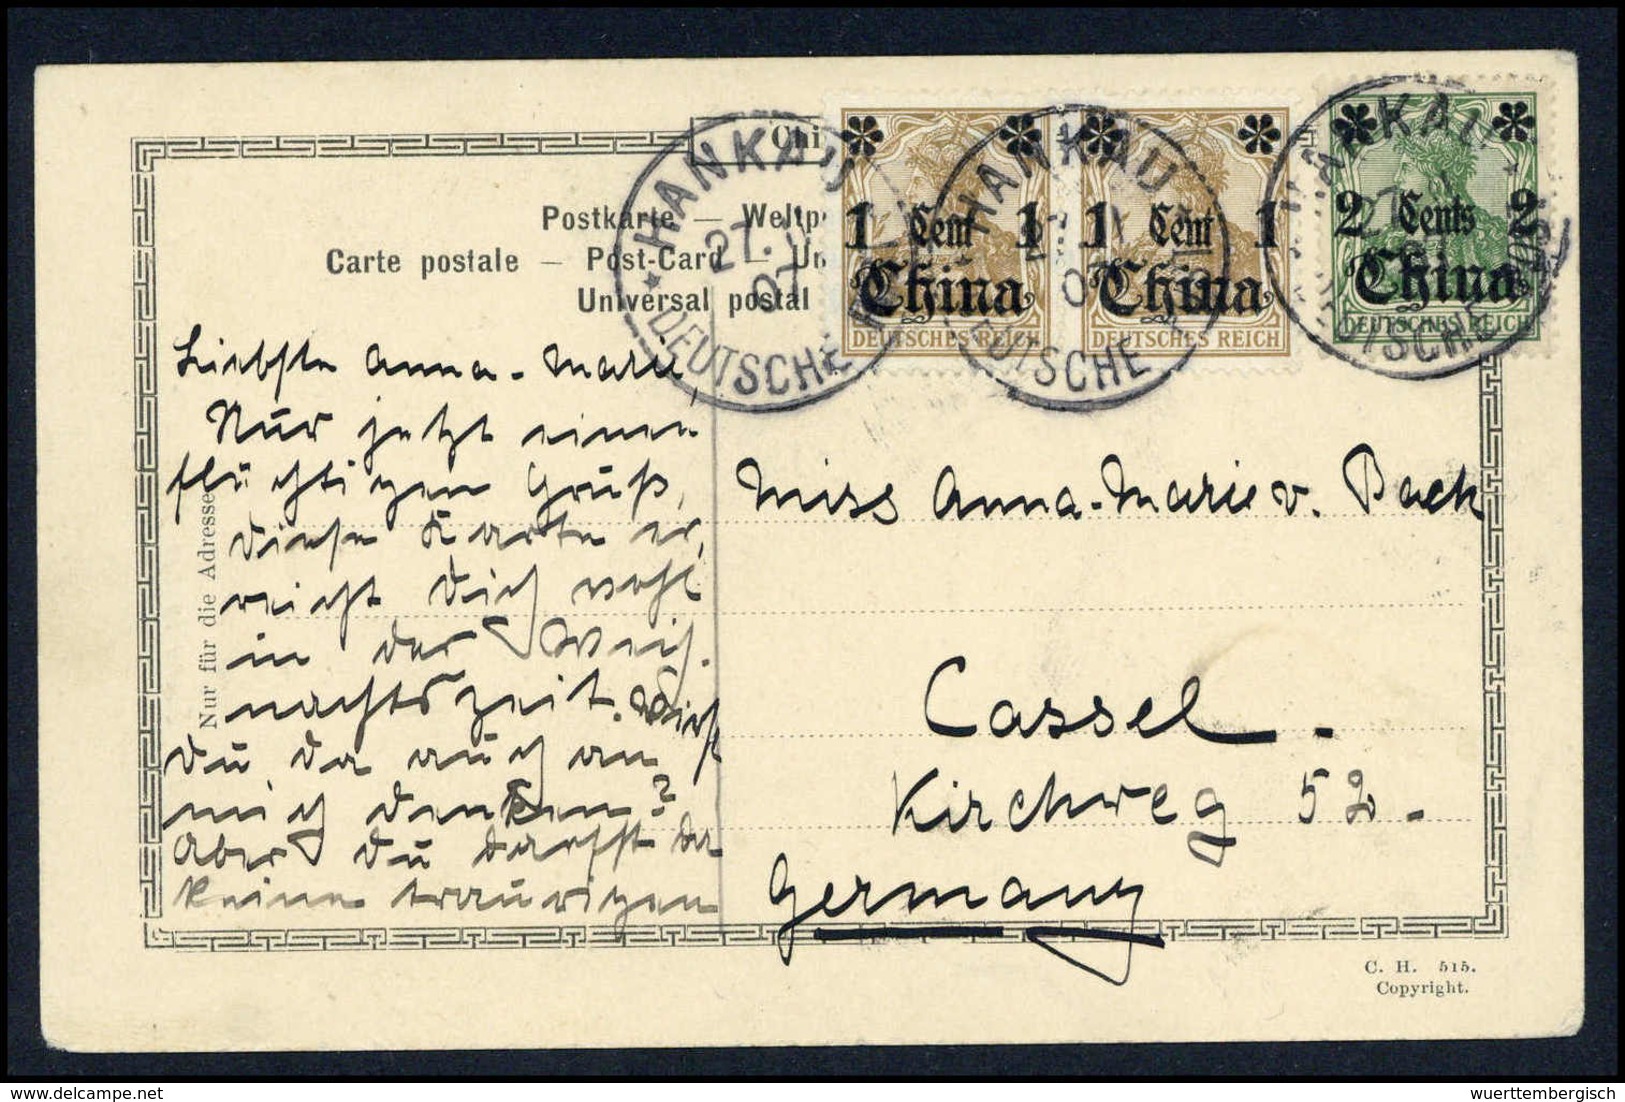 Chi
Postkarte — Weltp
Carte postale — Post-Card — Un
Universal postal
HANKAU
27.
07
DEUTSCHE
1 Cent 1
China
DEUTSCHES REICH
HANKAU
DEUTSCHE
1 Cent 1
China
DEUTSCHES REICH
KAU
DEUTSCHE
2 Cents 2
China
DEUTSCHES REICH
Nur für die Adresse
Liebste Anna-Marie,
Nur jetzt einen
flüchtigen Gruß,
diese Karte er,
reicht Dich wohl
in der Weih-
nachtszeit. Wirst
Du da auch an
mich denken?
Aber Du darfst da
keine traurigen
Miss Anna-Marie v. Back
Cassel.
Kirchweg 52.
Germany
C. H. 515.
Copyright.
delcampe.net
wuerttembergisch